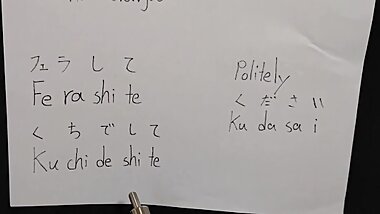 フェラ して
Fe ra shi te
く ち で し て
Ku chi de shi te
Politely
く だ さ い
Ku da sa i